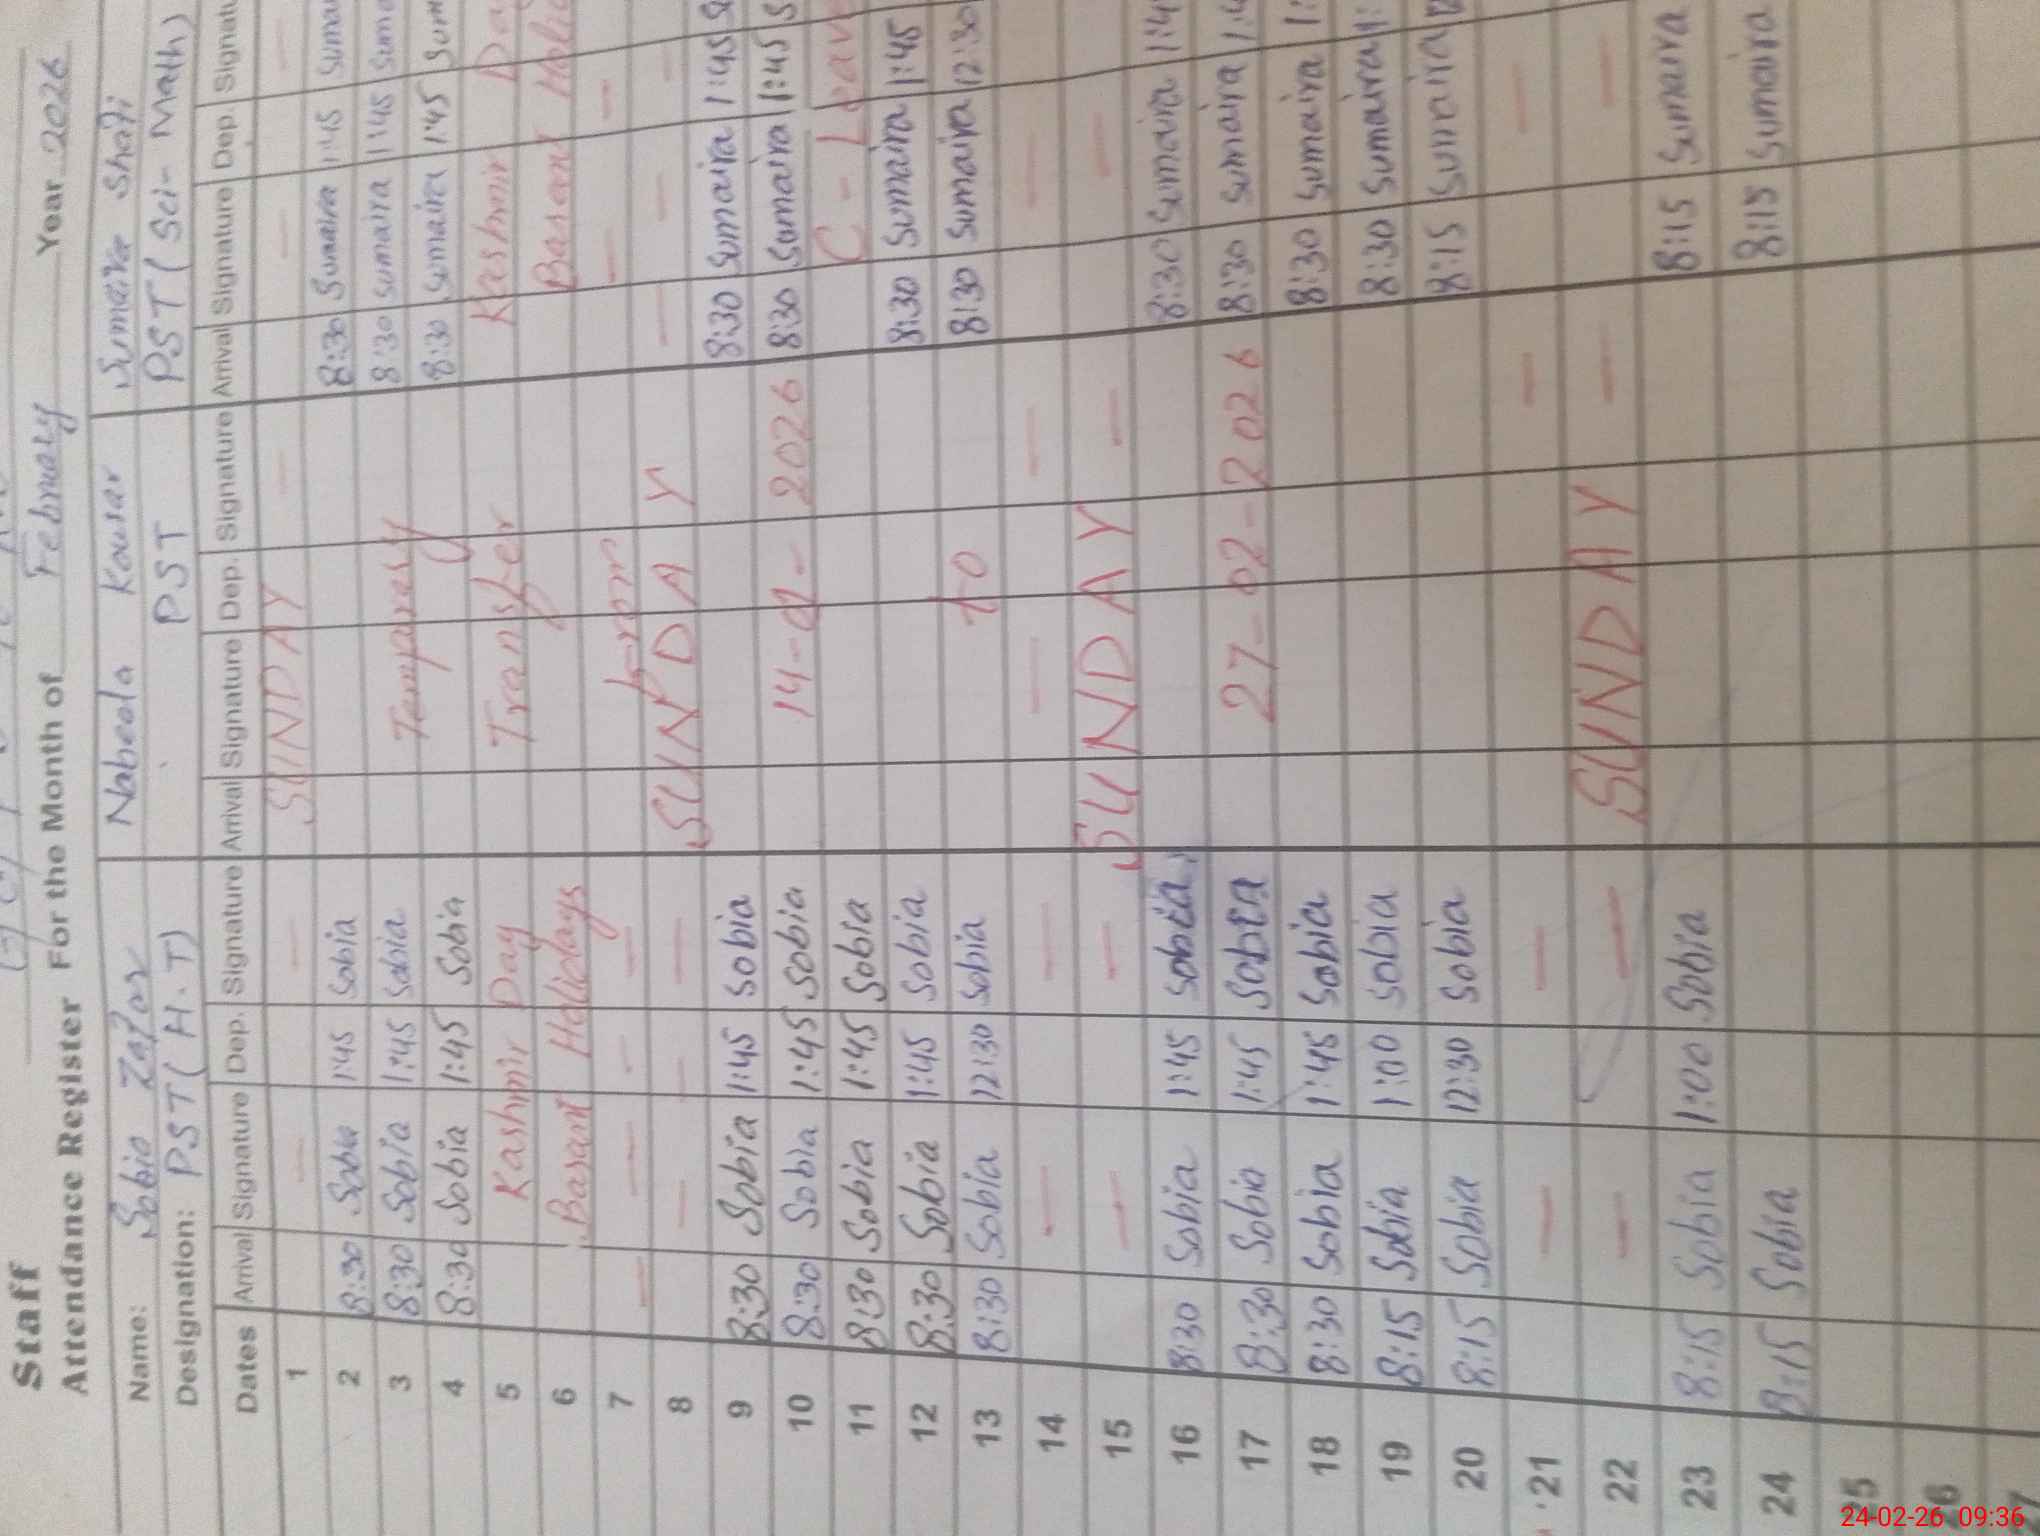 Staff
Attendance Register For the Month of February Year 2026
Name: Sobia Zafar Nabeela Kousar Sumaira Shafi
Designation: PST (H.T) PST PST (Sci-Math)
Dates Arrival Signature Dep. Signature Arrival Signature Dep. Signature Arrival Signature Dep. Signatu
1 — — SUNDAY — — —
2 8:30 Sobia 1:45 Sobia 8:30 Sumaira 1:45 Suma
3 8:30 Sobia 1:45 Sobia Temparary 8:30 Sumaira 1:45 Suma
4 8:30 Sobia 1:45 Sobia 8:30 Sumaira 1:45 Sum
5 Kashmir Day Transfer Kashmir Da
6 Basant Holidays Basant Holid
7 — — — — from — —
8 — — — SUNDAY — — —
9 8:30 Sobia 1:45 Sobia 8:30 Sumaira 1:45 S
10 8:30 Sobia 1:45 Sobia 14- - 2026 8:30 Sumaira 1:45 S
11 8:30 Sobia 1:45 Sobia C - Leav
12 8:30 Sobia 1:45 Sobia 8:30 Sumaira 1:45
13 8:30 Sobia 12:30 Sobia to 8:30 Sumaira 12:30
14 — — — — —
15 — — SUNDAY — —
16 8:30 Sobia 1:45 Sobia 8:30 Sumaira 1:4
17 8:30 Sobia 1:45 Sobia 27-02-2026 8:30 Sumaira 1:4
18 8:30 Sobia 1:45 Sobia 8:30 Sumaira 1:
19 8:15 Sobia 1:00 Sobia 8:30 Sumaira 1:
20 8:15 Sobia 12:30 Sobia 8:15 Sumaira 12
21 — — — —
22 — — SUNDAY — —
23 8:15 Sobia 1:00 Sobia 8:15 Sumaira
24 8:15 Sobia 8:15 Sumaira
25
26
24-02-26 09:36